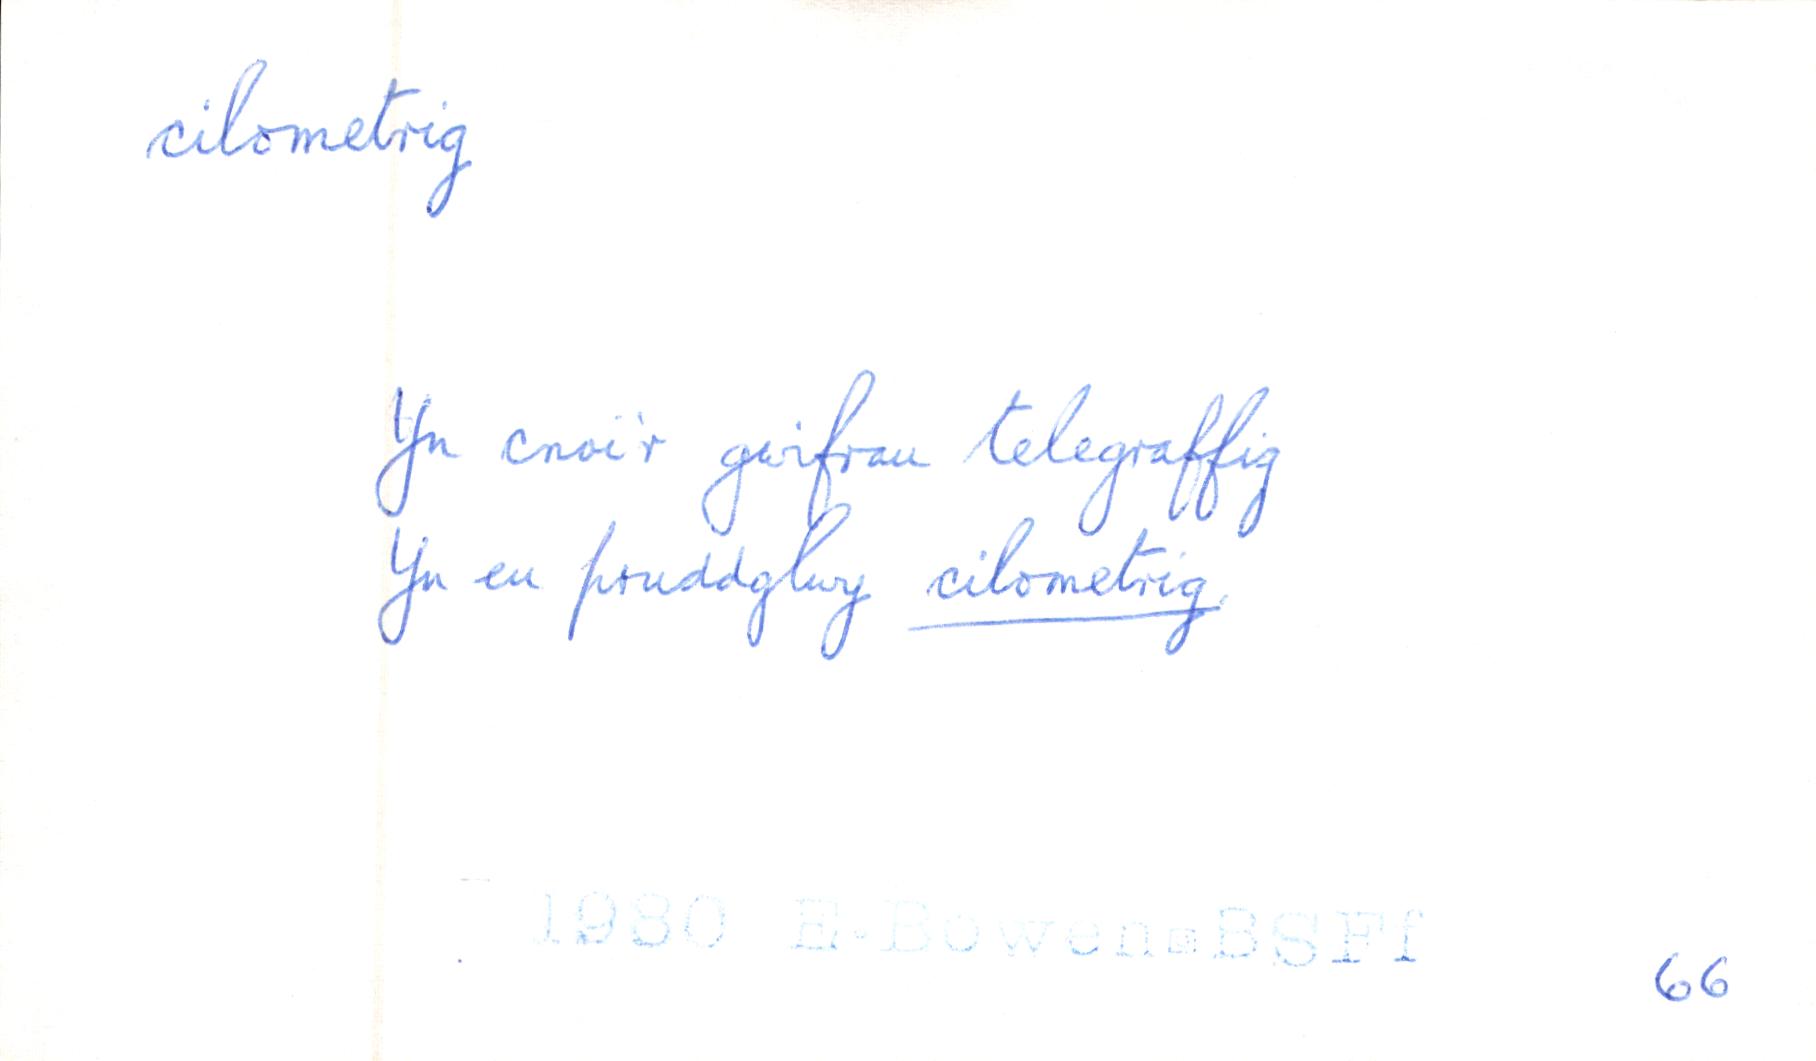 cilometrig
Yn cnoi'r gwifrau telegraffig
Yn eu pruddglwy cilometrig.
1980 E. Bowen: BSFf
66